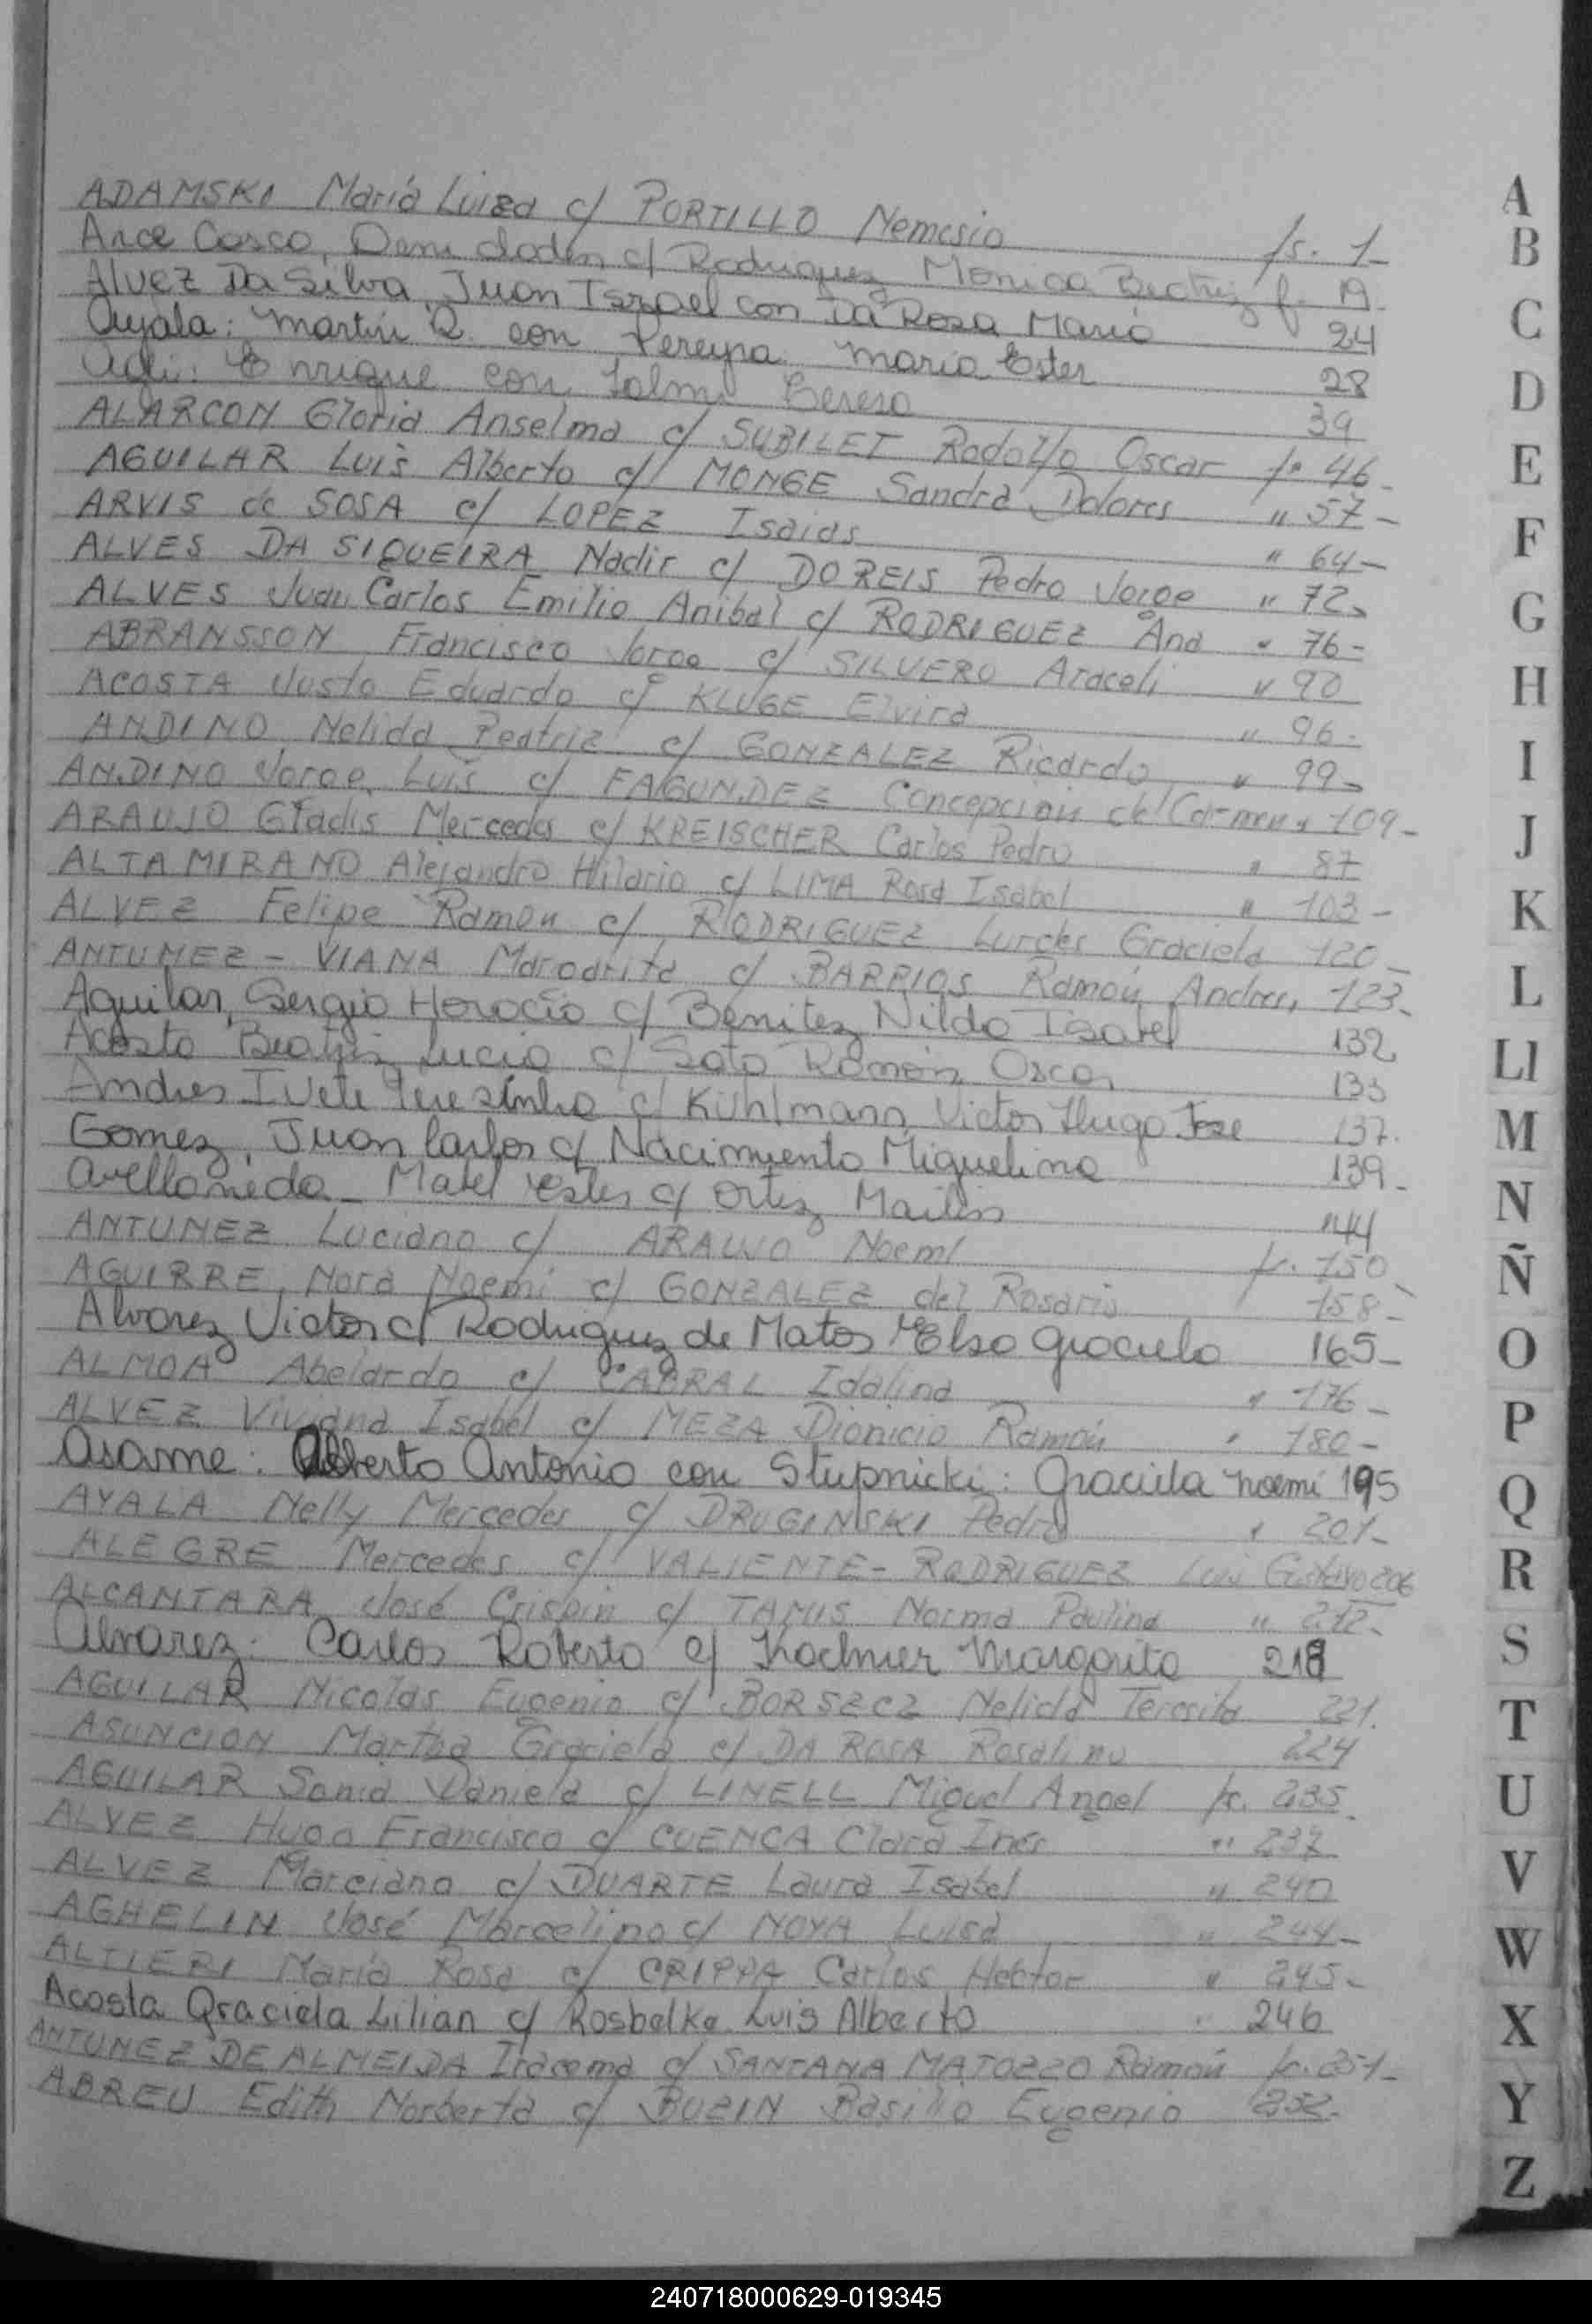 ADAMSKI María Luisa c/ PORTILLO Nemesio fs. 1-
Arce Cosco, c/ Rodriguez Monica Beatriz f.
Alvez Da Silva, Juan Israel con Da Rosa Maria 24
Ayala: Martín R. con Pereyra: Maria Ester 28
Enrique con 39
ALARCON Gloria Anselma c/ SUBILET Rodolfo Oscar fs 46-
AGUILAR Luis Alberto c/ MONGE Sandra Dolores " 57-
ARVIS de SOSA c/ LOPEZ Isaias " 64-
ALVES DA SIQUEIRA Nadir c/ DOREIS Pedro Jorge " 72-
ALVES Juan Carlos Emilio Anibal c/ RODRIGUEZ Ana " 76-
ABRANSSON Francisco Jorge c/ SILVERO Araceli " 90
ACOSTA Justo Eduardo c/ KLUGE Elvira " 96-
ANDINO, Nelida Beatriz c/ GONZALEZ Ricardo " 99-
ANDINO Jorge Luis c/ FAGUNDEZ Concepción del Carmen " 109-
ARAUJO Gladis Mercedes c/ KREISCHER Carlos Pedro " 87
ALTAMIRANO Alejandro Hilario c/ LIMA Rosa Isabel " 103-
ALVEZ Felipe Ramon c/ RODRIGUEZ Lurdes Graciela 120-
ANTUNEZ - VIANA Margarita c/ BARRIOS Ramón Andres, 123-
Aguilar, Sergio Horacio c/ Benitez Nilda Isabel 132
Acosta Beatriz Lucia c/ Soto Ramón Oscar 133
Andres Ivete Teresinha c/ Kuhlmann Victor Hugo Jose 137.
Gomez, Juan Carlos c/ Nacimiento Miguelina 139-
Avellaneda - Mabel Ester c/ Ortiz 144
ANTUNEZ Luciano c/ ARAUJO Noemi fs. 150
AGUIRRE, Nora Noemi c/ GONZALEZ del Rosario 158-
Alvarez Victor c/ Rodriguez de Matos Elsa Graciela 165-
ALMOA Abelardo c/ CABRAL Idalina " 176-
ALVEZ Viviana Isabel c/ MEZA Dionicio Ramón " 180-
Asame: Alberto Antonio con Stupnicki: Graciela Noemi 195
AYALA Nelly Mercedes c/ DRUGINSKI Pedro " 201-
ALEGRE Mercedes c/ VALIENTE - RODRIGUEZ Luis Gustavo 206
ALCANTARA José Crispin c/ TANUS Norma Paulina " 212-
Alvarez: Carlos Roberto c/ Margarita 218
AGUILAR Nicolas Eugenio c/ BORSECZ Nelida Teresita 221.
ASUNCION Martha Graciela c/ DA ROSA Rosalino 224
AGUILAR Sonia Daniela c/ LINELL Miguel Angel fs. 235-
ALVEZ Hugo Francisco c/ CUENCA Clara Ines " 237
ALVEZ Marciano c/ DUARTE Laura Isabel " 240
AGHELIN José Marcelino c/ NOYA Luisa " 244-
ALTIERI María Rosa c/ CRIPPA Carlos Hector " 245-
Acosta Graciela Lilian c/ Rosbalke Luis Alberto " 246
ANTUNEZ DE ALMEIDA Iracema c/ SANTANA MATOZZO Ramón fs. 251-
ABREU Edith Norberta c/ BUZIN Basilio Eugenio 252-
A
B
C
D
E
F
G
H
I
J
K
L
Ll
M
N
Ñ
O
P
Q
R
S
T
U
V
W
X
Y
Z
240718000629-019345